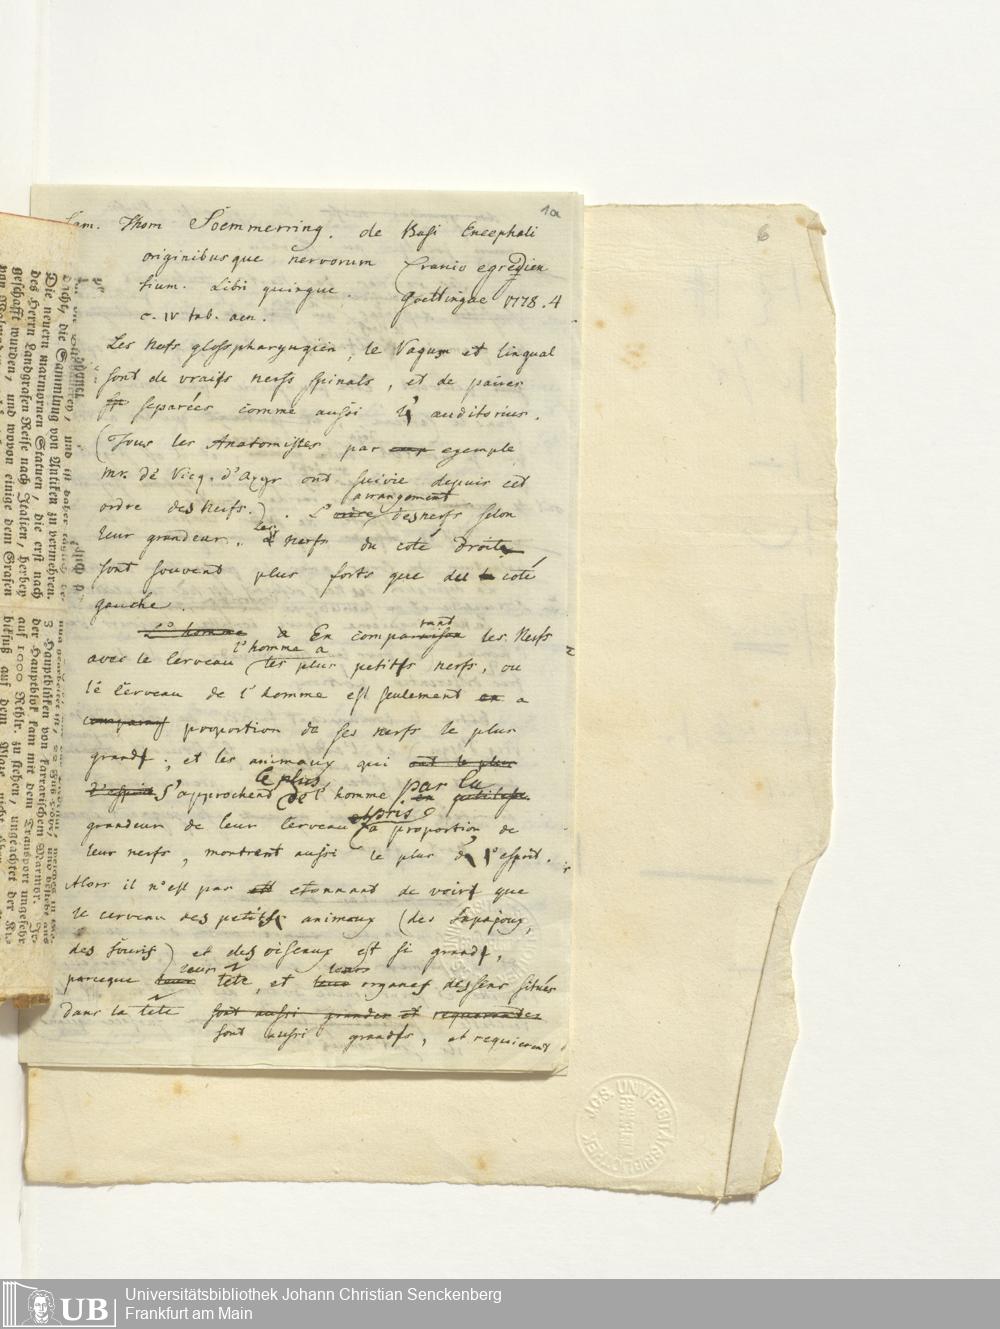 Sam. Thom Soemmerring. de Basi Encephali
originibusque nervorum Cranio egredien
tium. Libri quinque. Goettingae 1778. 4
c. IV tab. aen.
Les Nefs glosspharyngien, le Vagum et lingual
sont de vraifs nerfs spinals, et de paires
separées comme aussi l' auditorius.
(Tous les Anatomistes par exemple
Mr. de Vicq. d'Azyr ont suivie depuis cet
ordre des Nerfs.). L' ordre arrangement des nerfs selon
leur grandeur. les nerfs du coté droite
sont souvent plus forts que du coté
gauche.
L'homme En comparant les Nerfs
avec le Cerveau l'homme a les plus petitfs nerfs, ou
le Cerveau de l'homme est seulement en a
proportion de ses nerfs le plus
grand; et les animaux qui ont le plus
d'esprit s'approchent le plus de l'homme par la petitesse
grandeur de leur Cerveau a proportion de
leur nerfs, montrent aussi le plus d l'esprit.
Alors il n'est pas etonnant de voir que
le cerveau des petits animaux (des Sapajoux,
des Souris) et des oiseaux est si grand,
parceque leur tête, et leurs organes des sens situés
dans la tête sont aussi grandes et
sont aussi grandfs, et requierent
1a
6
J.C.S. UNIVERSITÄTSBIBLIOTHEK
Die neuern marmornen Statuen, die erst nach
des Herrn Landgrafen Reise nach Italien, herbey
geschafft wurden, und wovon einige dem Grafen
3 Hauptblöken von karrarischem Marmor.
der Hauptblok kam mit dem Transport ungefehr
auf 1000 Rthlr. zu stehen, ungeachtet der
UB
Universitätsbibliothek Johann Christian Senckenberg
Frankfurt am Main